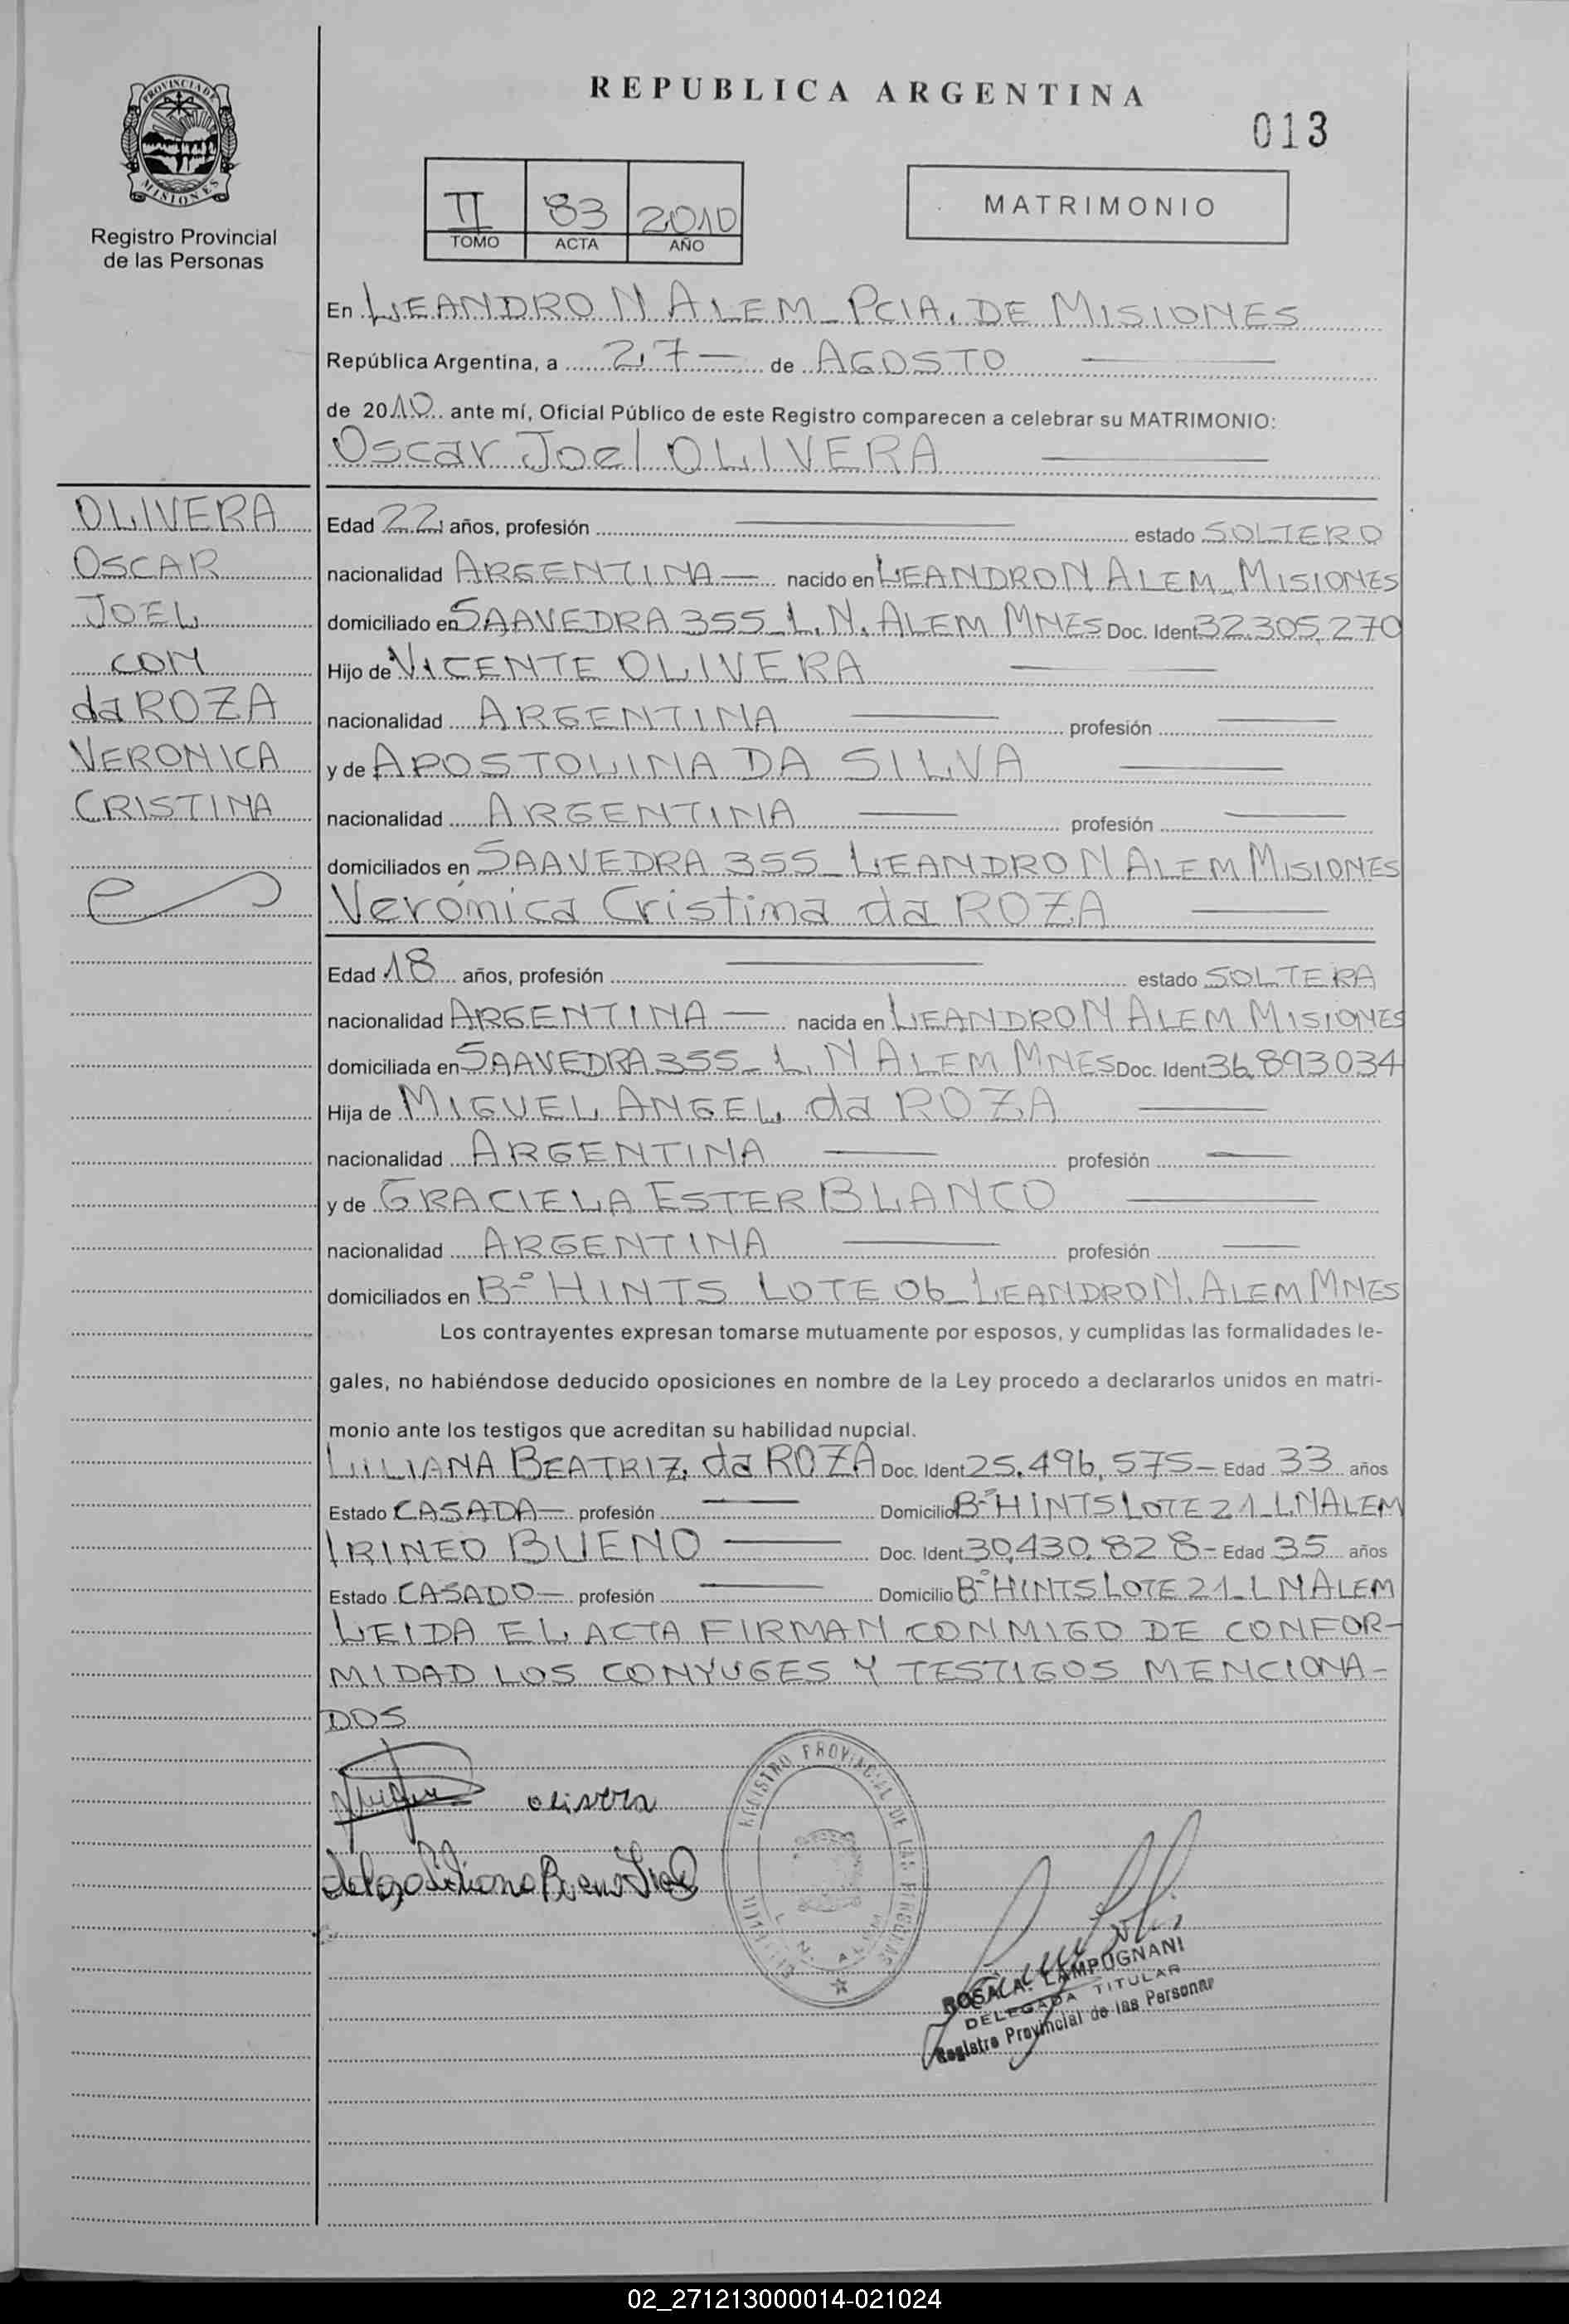 REPUBLICA ARGENTINA
013
PROVINCIA DE
MISIONES
Registro Provincial
de las Personas
II 83 2010
TOMO ACTA AÑO
MATRIMONIO
En LEANDRO N ALEM - PCIA. DE MISIONES
República Argentina, a 27 — de AGOSTO
de 2010 ante mí, Oficial Público de este Registro comparecen a celebrar su MATRIMONIO:
Oscar Joel OLIVERA
OLIVERA
OSCAR
JOEL
CON
da ROZA
VERONICA
CRISTINA
Edad 22 años, profesión estado SOLTERO
nacionalidad ARGENTINA — nacido en LEANDRO N ALEM - MISIONES
domiciliado en SAAVEDRA 355 - L. N. ALEM MNES Doc. Ident 32.305.270
Hijo de VICENTE OLIVERA
nacionalidad ARGENTINA profesión
y de APOSTOLINA DA SILVA
nacionalidad ARGENTINA profesión
domiciliados en SAAVEDRA 355 - LEANDRO N ALEM MISIONES
Verónica Cristina da ROZA
Edad 18 años, profesión estado SOLTERA
nacionalidad ARGENTINA — nacida en LEANDRO N ALEM MISIONES
domiciliada en SAAVEDRA 355 - L. N ALEM MNES Doc. Ident 36.893.034
Hija de MIGUEL ANGEL da ROZA
nacionalidad ARGENTINA profesión
y de GRACIELA ESTER BLANCO
nacionalidad ARGENTINA profesión
domiciliados en Bº HINTS LOTE 06 - LEANDRO N. ALEM MNES
Los contrayentes expresan tomarse mutuamente por esposos, y cumplidas las formalidades le-
gales, no habiéndose deducido oposiciones en nombre de la Ley procedo a declararlos unidos en matri-
monio ante los testigos que acreditan su habilidad nupcial.
LILIANA BEATRIZ da ROZA Doc. Ident 25.496.575 - Edad 33 años
Estado CASADA — profesión Domicilio Bº HINTS LOTE 21 - L N ALEM
IRINEO BUENO Doc. Ident 30.430.828 - Edad 35 años
Estado CASADO — profesión Domicilio Bº HINTS LOTE 21 - L N ALEM
LEIDA EL ACTA FIRMAN CONMIGO DE CONFOR-
MIDAD LOS CONYUGES Y TESTIGOS MENCIONA-
DOS
olivera
REGISTRO PROVINCIAL DE LAS PERSONAS
L. N. ALEM
ROSA A. LAMPUGNANI
DELEGADA TITULAR
Registro Provincial de las Personas
02_271213000014-021024